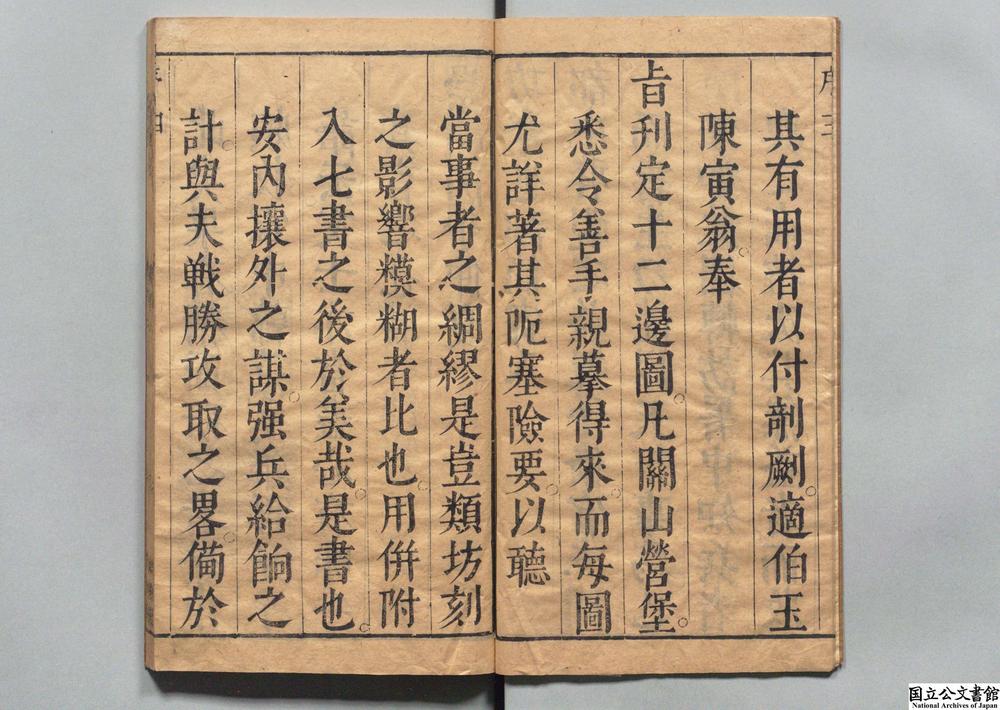 序 三
其有用者以付剞劂。適伯玉
陳寅翁。奉
旨刊定十二邊圖。凡關山營堡。
悉令善手親摹得來。而每圖
尤詳著其阨塞險要。以聽
當事者之綢繆是豈類坊刻
之影響糢糊者比也。用併附
入七書之後於美哉是書也。
安內攘外之謀。强兵給餉之
計。與夫戦勝攻取之畧。備於
序 四
国立公文書館
National Archives of Japan